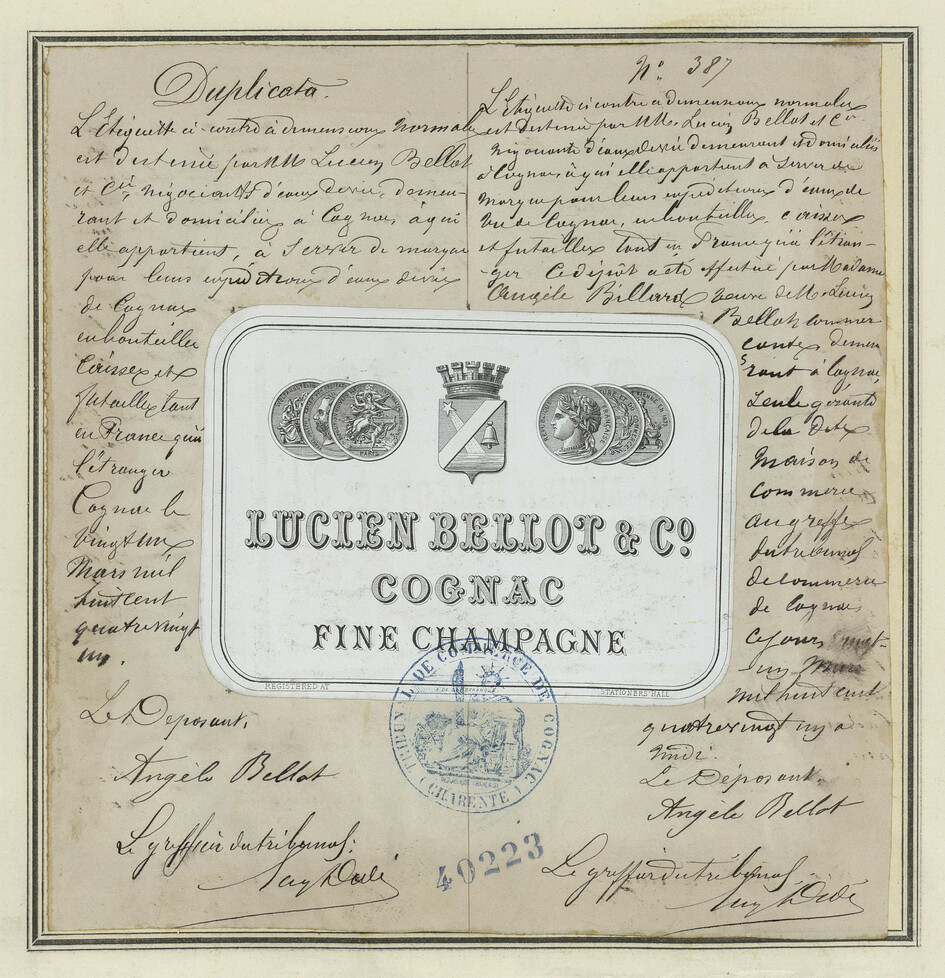 Duplicata.
L'Étiquette ci-contre à dimensions normales
est destinée par MM Lucien Bellot
et Cie négociants d'eaux de vie, demeu-
rant et domiciliés à Cognac, à qui
elle appartient, à servir de marque
pour leurs expéditions d'eaux de vie
de Cognac
en bouteilles
Caisses et
futailles tant
en France qu'à
l'étranger
Cognac le
vingt un
Mars mil
huit cent
quatre vingt
un.
Le Déposant,
Angèle Bellot
Le greffier du tribunal:
No 387
L'Étiquette ci contre à dimensions normales
est destinée par MM. Lucien Bellot et Cie
négociants d'eaux de vie demeurant et domiciliés
à Cognac, à qui elle appartient à servir de
marque pour leurs expéditions d'eaux de
vie de Cognac, en bouteilles, caisses
et futailles tant en France qu'à l'étran-
-ger Ce dépôt a été effectué par Madame
Angèle Billard veuve de M. Lucien
Bellot, commer
cante, demeu
rant à Cognac,
Seule gérante
de la dite
Maison de
Commerce
au greffe
du tribunal
de commerce
de Cognac
Ce jour vingt-
-un Mars
mil huit cent
quatre vingt un à
midi.
Le Déposant.
Angèle Bellot
Le greffier du tribunal
PARIS
LUCIEN BELLOT & Co.
COGNAC
FINE CHAMPAGNE
REGISTERED AT
STATIONERS' HALL
TRIBUNAL DE COMMERCE DE COGNAC
(CHARENTE)
40223